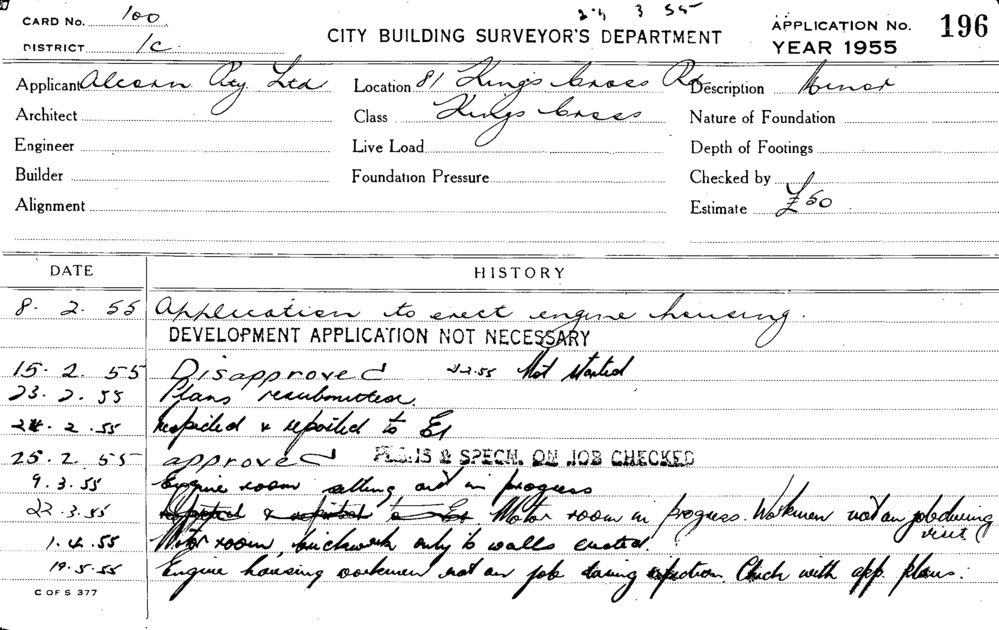 CARD No. 100
24 3 55
DISTRICT 1C.
CITY BUILDING SURVEYOR'S DEPARTMENT
APPLICATION No. 196
YEAR 1955
Applicant Alcorn Pty Ltd Location 81 Kings Cross Rd Description Minor
Architect Class Kings Cross Nature of Foundation
Engineer Live Load Depth of Footings
Builder Foundation Pressure Checked by
Alignment Estimate £50
DATE HISTORY
8. 2. 55 Application to erect engine housing.
DEVELOPMENT APPLICATION NOT NECESSARY
15. 2. 55 Disapproved Not started
23. 2. 55 Plans resubmitted.
24. 2. 55 Inspected & reported to
25. 2. 55 approved PLANS & SPECN. ON JOB CHECKED
9. 3. 55 Engine room setting out in progress
22. 3. 55 Inspected & reported to Motor room in progress. Workmen not on job during visit
1. 4. 55 Motor room, brickwork only to walls erected.
19. 5. 55 Engine housing workmen not on job during inspection. Check with app. plans.
C OF S 377